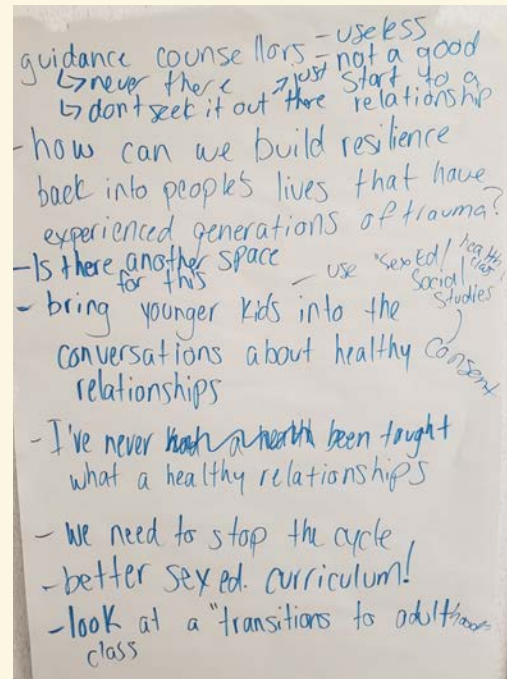 - useless
guidance counsellors - not a good
↳ never there → just start to a
↳ dont seek it out there relationship
- how can we build resilience
back into people's lives that have
experienced generations of trauma?
- Is there another space
for this
- use "Sex Ed / health class /
Social
Studies
- bring younger kids into the
conversations about healthy consent
relationships
- I've never been taught
what a healthy relationships
- We need to stop the cycle
- better sex ed. curriculum!
- look at a "transitions to adulthood"
class